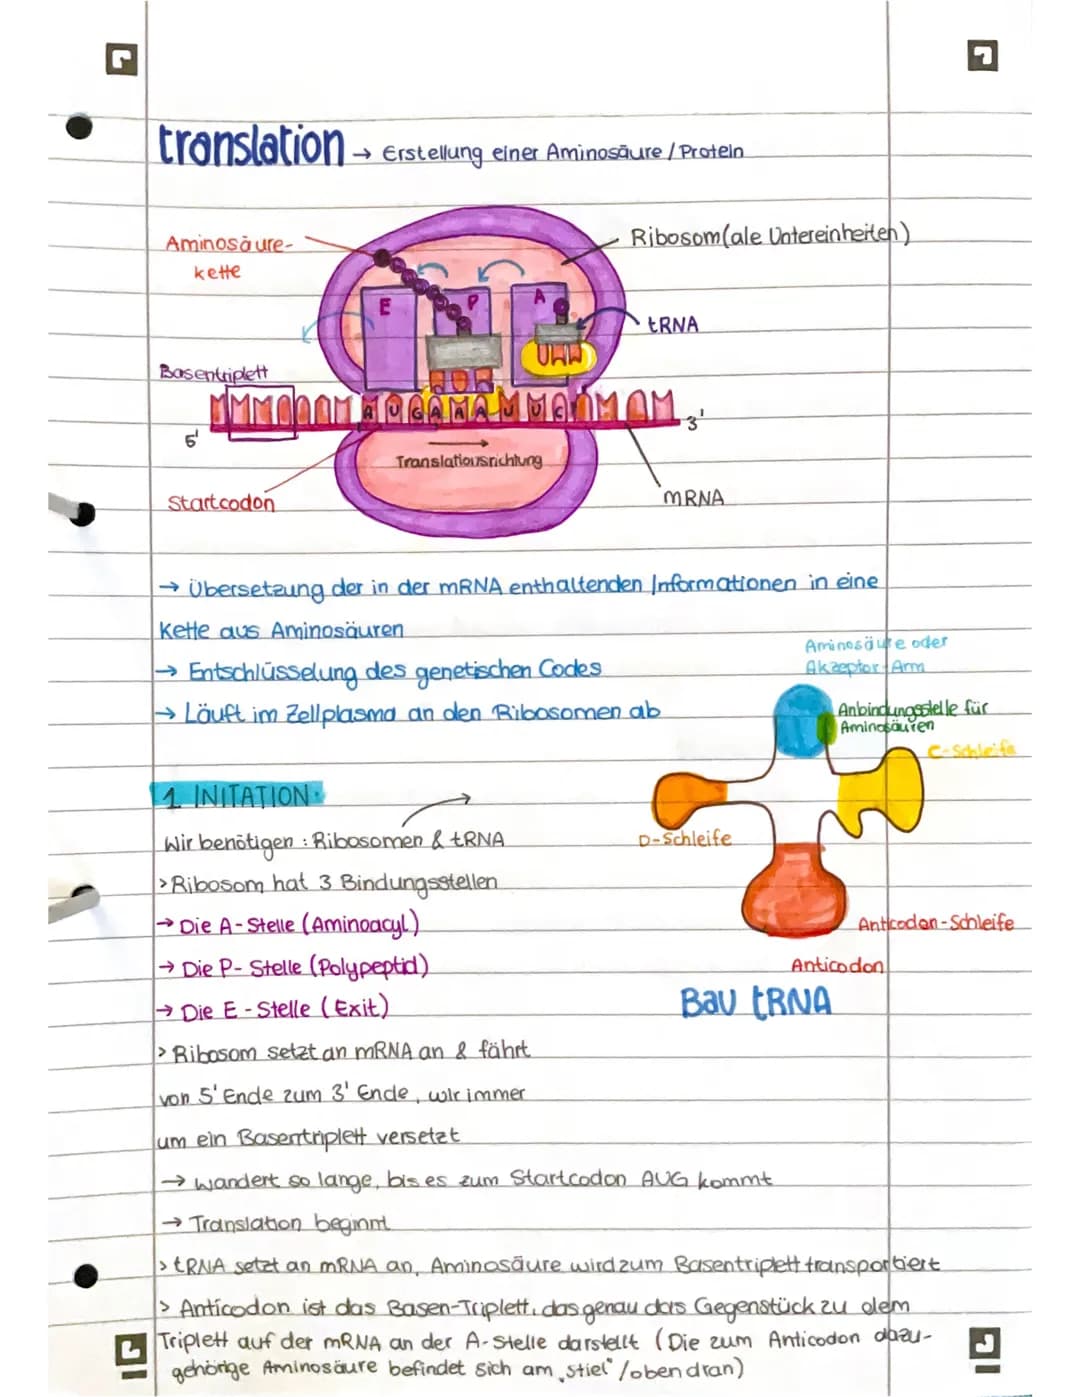 translation → Erstellung einer Aminosäure / Protein
Aminosäure-
kette
Ribosom(ale Untereinheiten)
E
P
A
tRNA
Basentriplett
A U G A A A U U C
5'
3'
Translationsrichtung
Startcodon
mRNA
→ Übersetzung der in der mRNA enthaltenden Informationen in eine
Kette aus Aminosäuren
→ Entschlüsselung des genetischen Codes
→ Läuft im Zellplasma an den Ribosomen ab
Aminosäure oder
Akzeptor-Arm
Anbindungsstelle für
Aminosäuren
C-Schleife
D-Schleife
Anticodon-Schleife
Anticodon
Bau tRNA
1. INITATION:
Wir benötigen : Ribosomen & tRNA
> Ribosom hat 3 Bindungsstellen
→ Die A-Stelle (Aminoacyl)
→ Die P-Stelle (Polypeptid)
→ Die E-Stelle (Exit)
> Ribosom setzt an mRNA an & fährt
von 5' Ende zum 3' Ende, wir immer
um ein Basentriplett versetzt
→ wandert so lange, bis es zum Startcodon AUG kommt
→ Translation beginnt
> tRNA setzt an mRNA an, Aminosäure wird zum Basentriplett transportiert
> Anticodon ist das Basen-Triplett, das genau das Gegenstück zu dem
Triplett auf der mRNA an der A-Stelle darstellt (Die zum Anticodon dazu-
gehörige Aminosäure befindet sich am „stiel“ / oben dran)